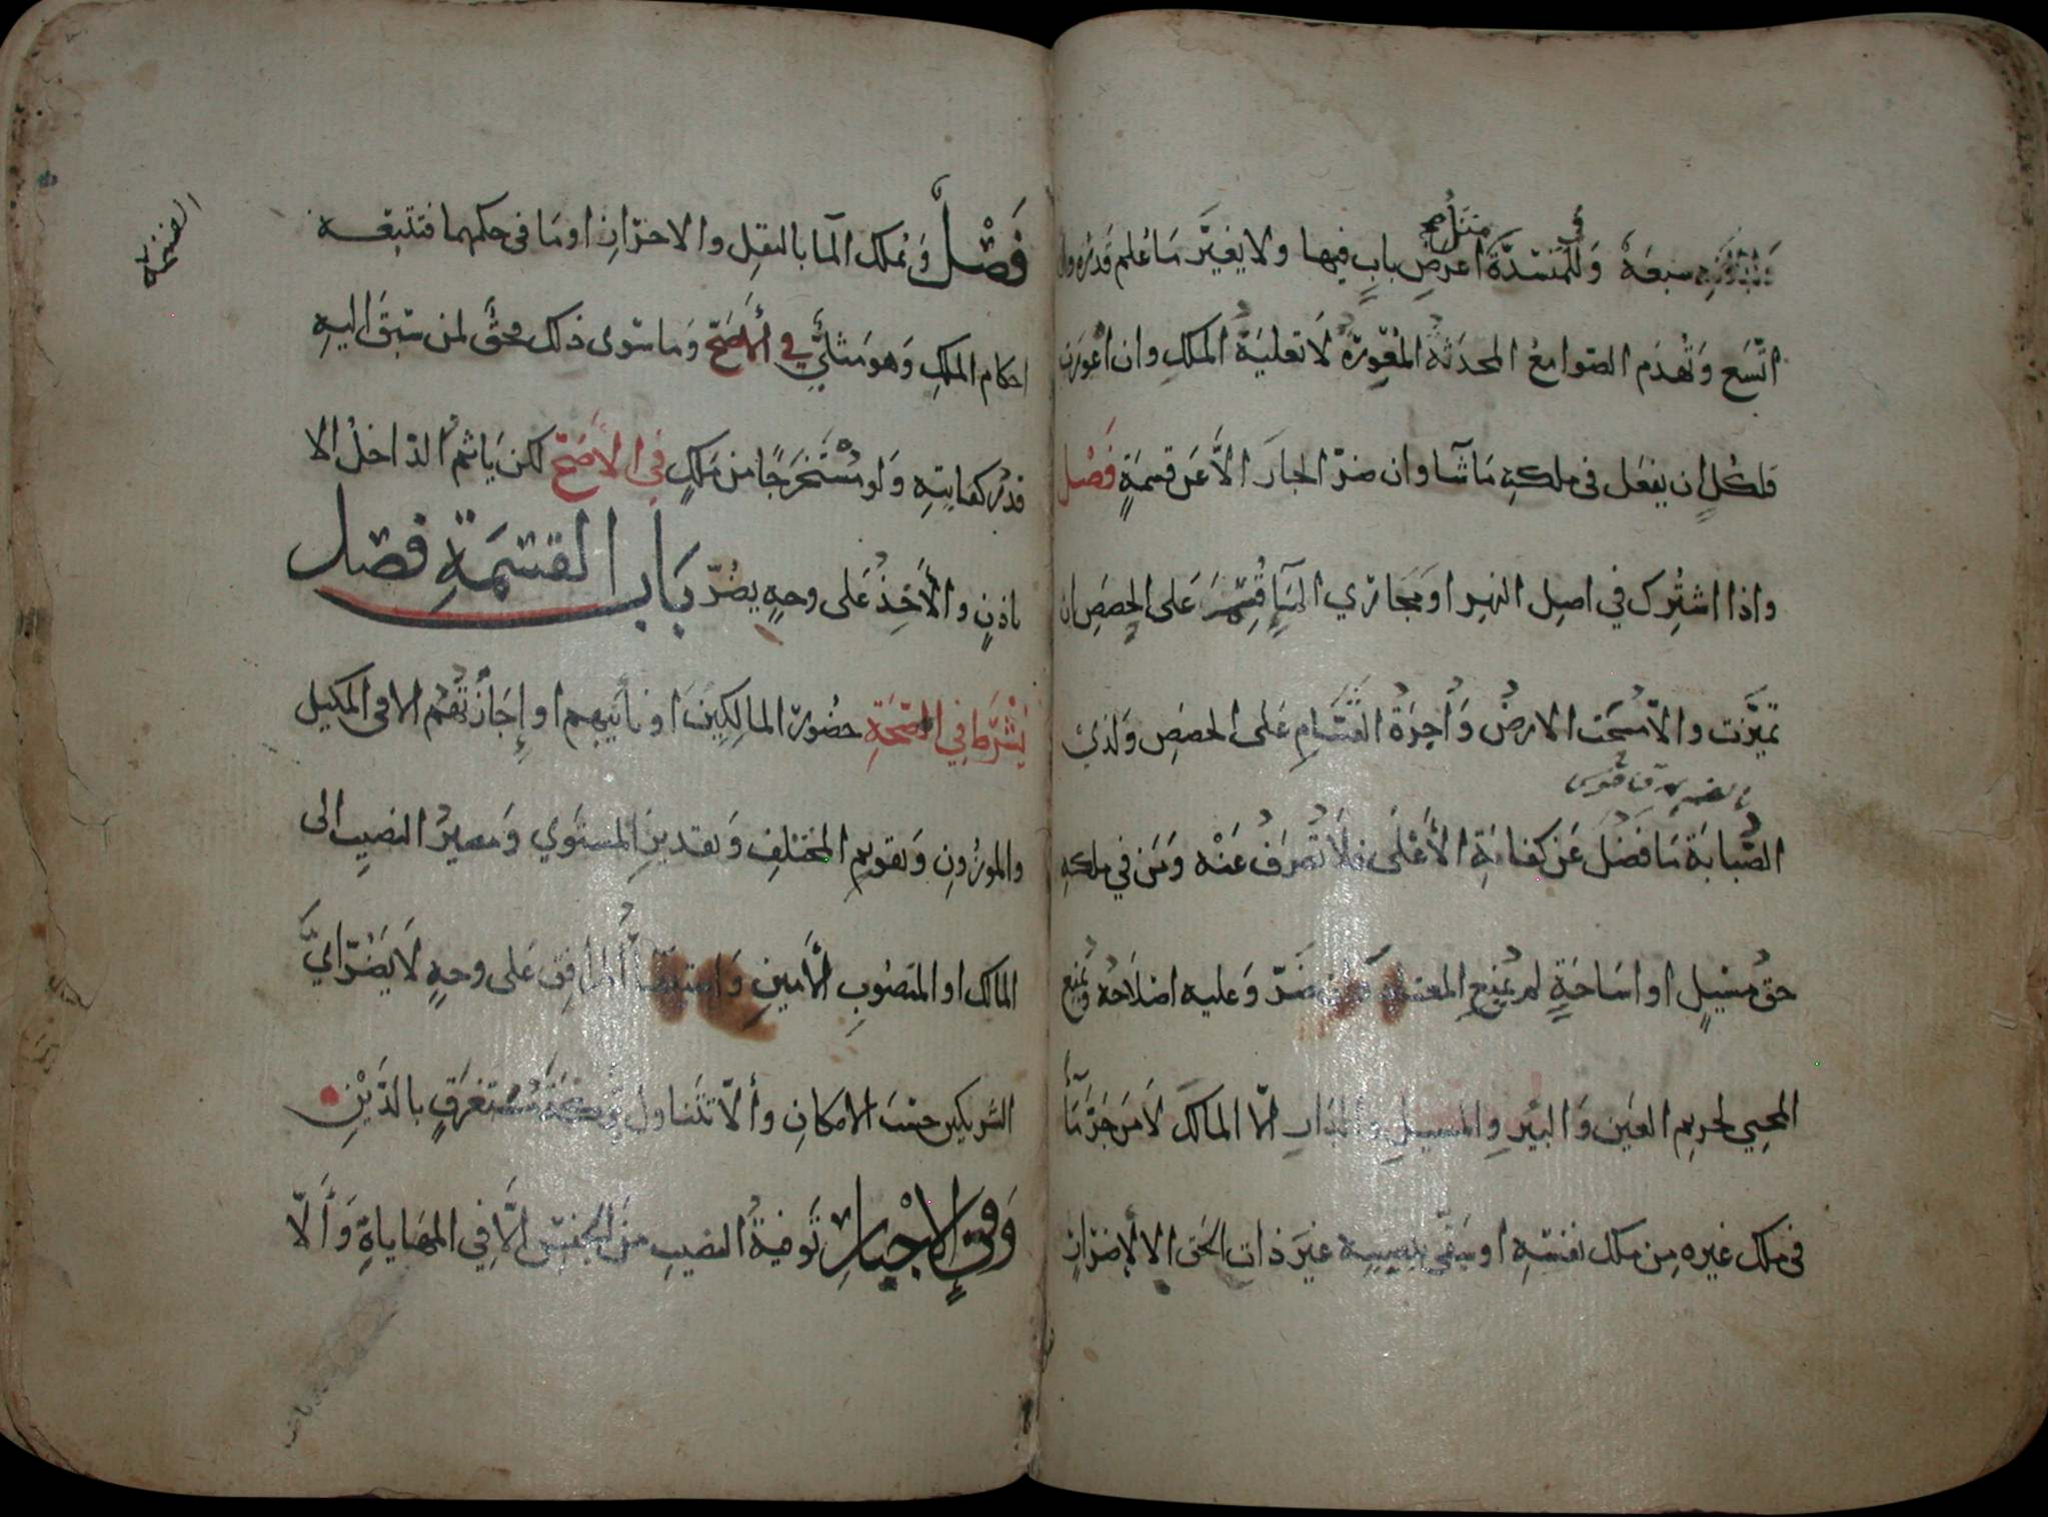 سبعة وَفي المُنسَدَّة مثل اعرض باب فيها ولا يغيّر ما عُلم قدره وان
اتّسع وَتُهدَم الصوامعُ المحدَثةُ المُعْوِرَةُ لا تعليةُ الملكِ وان اعْوَرَت
فلكلٍّ ان يفعَل في ملكهِ ما شآ وان ضرّ الجارَ الَّا عَن قسمةٍ فَصْل
واذا اشتُرِك في اصلِ النهرِ او مَجَاري المآءِ قُسِّمَ عَلى الحِصَصِ ان
تميَّزت والّا مُسحَت الارضُ وَأُجرَةُ القَسَّامِ عَلى الحصَصِ وَلذي
الصُّبابَة مَا فَضُلَ عَن كفايَةِ الأَعْلَى فلا تُصرَفُ عَنْه وَمَن في ملكهِ
حقُّ مسيلٍ او اسَاحَةٍ لم يُمنع المعتاد وَان ضَرّ وَعليه اصلاحُهُ وَيُمنع
المحيي لحريم العَين وَالبئرِ وِالمسيلِ والدّارِ الّا المالكَ لا مَن جَرَّ مَآ
في ملك غيره مِن ملك نفسهِ او سَقى بنصيبه غيرَ ذات الحَق الا لإضرارٍ
فَصْلٌ وَيُملك المآ بالنقلِ والاحرَازِ او مَا في حكمهما فتتبعه
احكام الملكِ وَهوَ مثليٌّ في الأَصَحّ وَما سوى ذلك فحقٌّ لمن سبَقَ اليهِ
قدرُ كفايتهِ وَلو مُسْتَخرَجًا من مَلكٍ في الأَصَحّ لكن يَأثمُ الدّاخلُ الا
باذنٍ والأَخِذُ عَلى وجهٍ يضُرّ بَاب القسمَةِ فصل
يُشْرَط في الصّحّةِ حضُورُ المالِكِينَ او نائبهم او إجَازَتُهُم الا في المكيل
والموزُونِ وَتقويم المختلفِ وَتقديرُ المستوي وَمصيرُ النصيب الى
المالك او المنصُوبِ الأَمينِ وَاستيفآءُ المرافِقِ عَلى وجهٍ لا يَضُرّ ايَّ
الشريكين حسبَ الامكانِ وألّا تتَناول تركةً مُستغرَقةٍ بالدَّيْنِ
وَفِي الإجْبارِ تَوفيةُ النصيبِ منَ الجنسِ الَّا في المهَاياةِ وَأَلّا